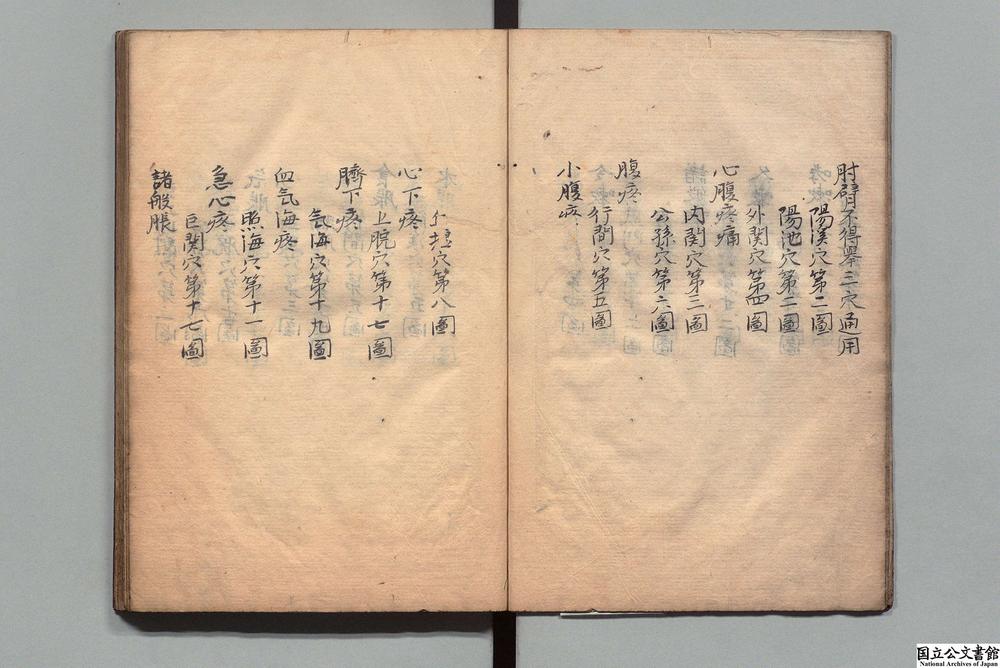 肘臂不得舉三穴通用
陽溪穴第二圖
陽池穴第二圖
外関穴第四圖
心腹疼痛
内関穴第三圖
公孫穴第六圖
腹疼
行間穴第五圖
小腹疼
穴第八圖
心下疼
上脘穴第十七圖
臍下疼
氣海穴第十九圖
血氣海疼
照海穴第十一圖
急心疼
巨関穴第十七圖
諸般脹
国立公文書館
National Archives of Japan